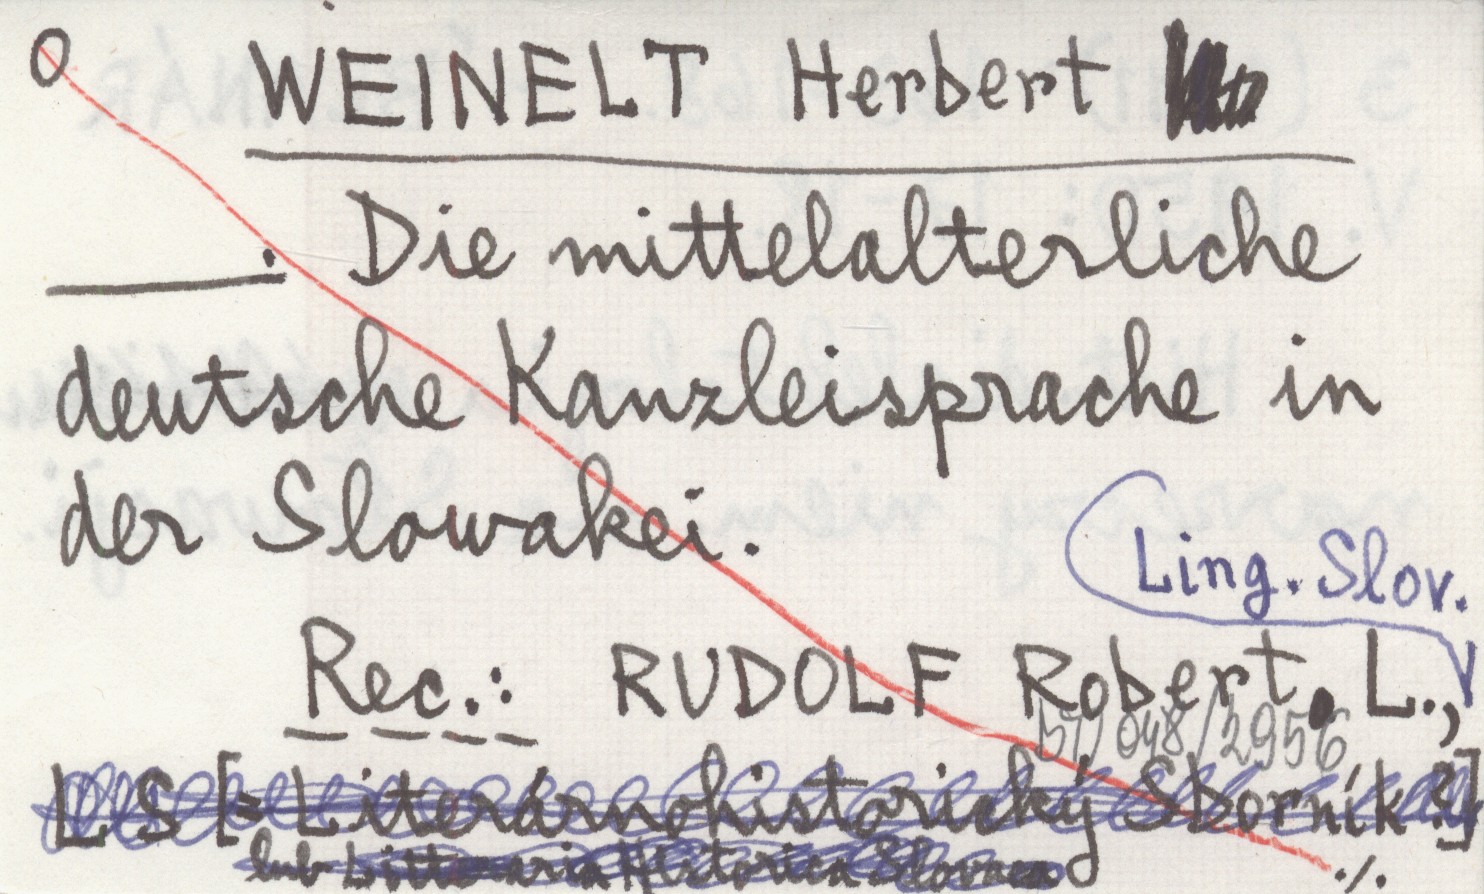 O WEINELT Herbert
____. Die mittelalterliche
deutsche Kanzleisprache in
der Slowakei.
Ling. Slov.
Rec.: RUDOLF Robert. L.,
57/048/2956
LS [= Literárnohistorický Sborník?]
lub Litteraria Historica Slovaca
./.